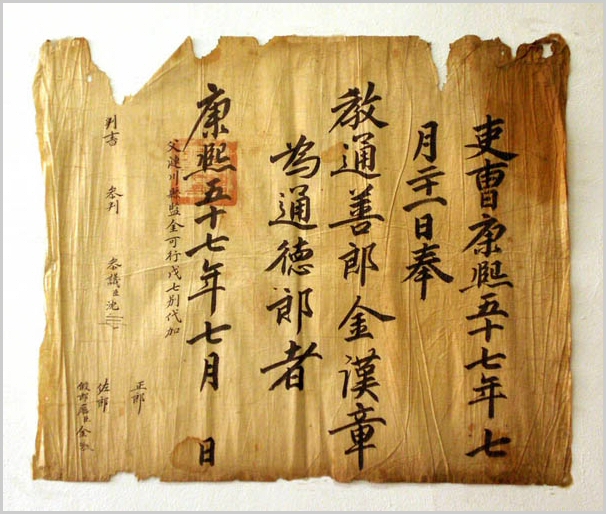 吏曹康熙五十七年七
月二十一日奉
教通善郎金漢章
為通德郎者
康熙五十七年七月 日
父漣川縣監金可行戊七別代加
正郎
判書 參判 參議臣沈
佐郎
假郎廳臣金